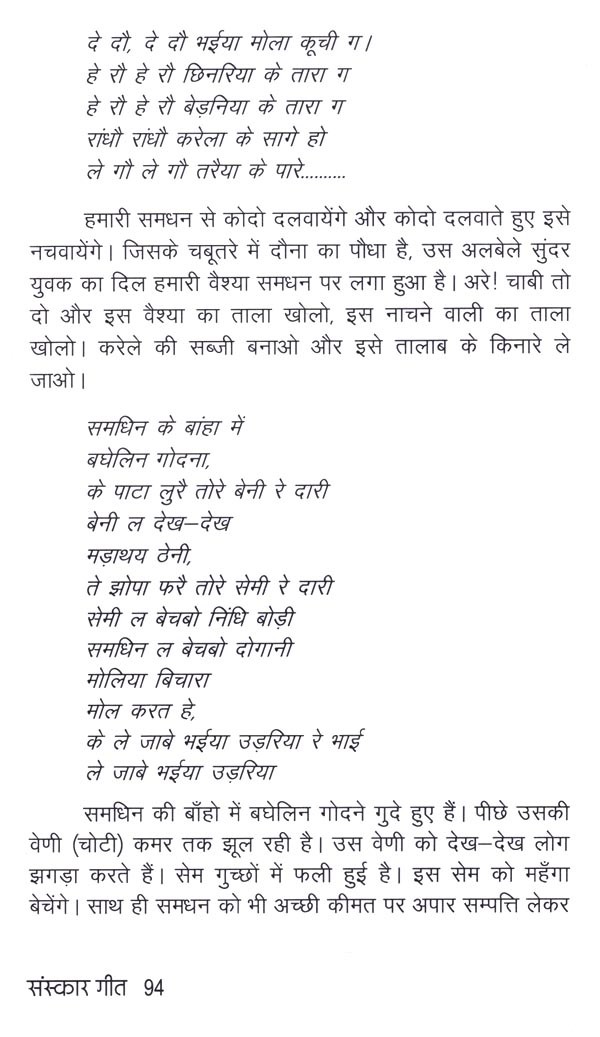 दे दौ, दे दौ भईया मोला कूची ग।
हे रौ हे रौ छिनरिया के तारा ग
हे रौ हे रौ बेड़निया के तारा ग
रांधौ रांधौ करेला के सागे हो
ले गौ ले गौ तरैया के पारे..........
हमारी समधन से कोदो दलवायेंगे और कोदो दलवाते हुए इसे
नचवायेंगे। जिसके चबूतरे में दौना का पौधा है, उस अलबेले सुंदर
युवक का दिल हमारी वैश्या समधन पर लगा हुआ है। अरे! चाबी तो
दो और इस वैश्या का ताला खोलो, इस नाचने वाली का ताला
खोलो। करेले की सब्जी बनाओ और इसे तालाब के किनारे ले
जाओ।
समधिन के बांहा में
बघेलिन गोदना,
के पाटा लुरै तोरे बेनी रे दारी
बेनी ल देख–देख
मड़ाथय ठेनी,
ते झोपा फरै तोरे सेमी रे दारी
सेमी ल बेचबो निंधि बोड़ी
समधिन ल बेचबो दोगानी
मोलिया बिचारा
मोल करत हे,
के ले जाबे भईया उड़रिया रे भाई
ले जाबे भईया उड़रिया
समधिन की बाँहो में बघेलिन गोदने गुदे हुए हैं। पीछे उसकी
वेणी (चोटी) कमर तक झूल रही है। उस वेणी को देख–देख लोग
झगड़ा करते हैं। सेम गुच्छों में फली हुई है। इस सेम को महँगा
बेचेंगे। साथ ही समधन को भी अच्छी कीमत पर अपार सम्पत्ति लेकर
संस्कार गीत 94